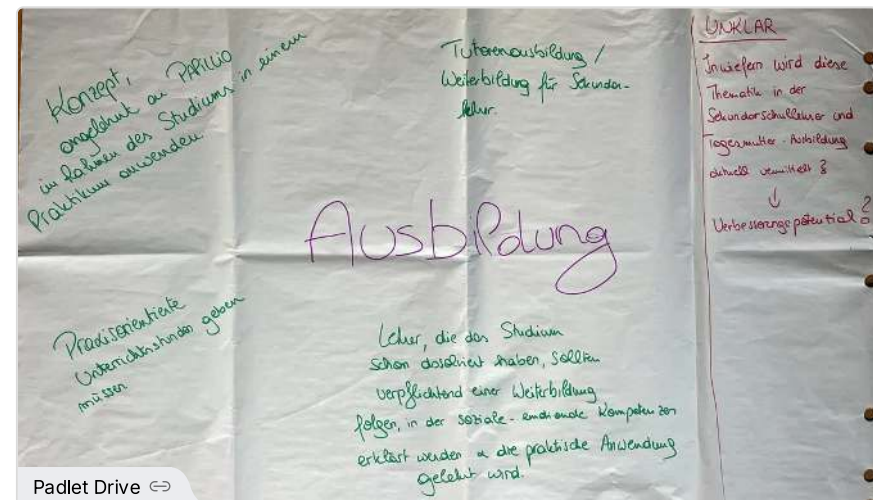 Konzept,
angelehnt an PAPILIO
im Rahmen des Studiums in einem
Praktikum anwenden
Tutorenausbildung /
Weiterbildung für Sekundar-
lehrer.
UNKLAR
Inwiefern wird diese
Thematik in der
Sekundarschullehrer und
Tagesmutter-Ausbildung
aktuell vermittelt ?
↓
Verbesserungspotential ?
Ausbildung
Praxisorientierte
Unterrichtsstunden geben
müssen
Lehrer, die das Studium
schon absolviert haben, sollten
verpflichtend einer Weiterbildung
folgen, in der soziale-emotionale Kompetenzen
erklärt werden & die praktische Anwendung
gelehrt wird.
Padlet Drive